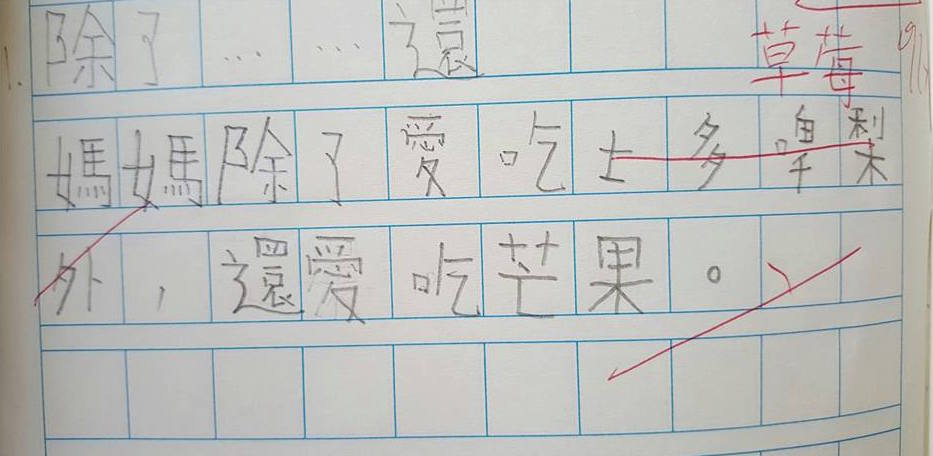 1. 除了……還
草莓
媽媽除了愛吃士多啤梨
外，還愛吃芒果。